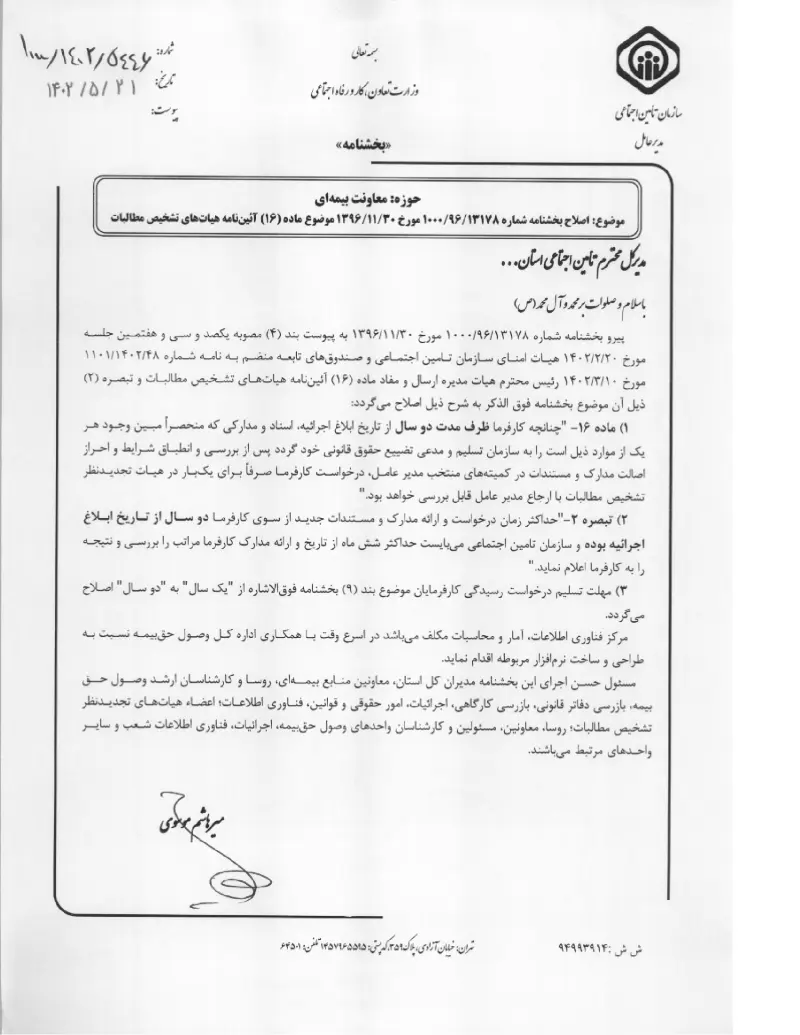 بسمه تعالی
شماره: ۱۰۰۰/۱۴۰۲/۵۴۴۶
وزارت تعاون، کار و رفاه اجتماعی
تاریخ: ۱۴۰۲/۵/۲۱
پیوست:
سازمان تأمین اجتماعی
مدیرعامل
«بخشنامه»
حوزه: معاونت بیمه‌ای
موضوع: اصلاح بخشنامه شماره ۱۰۰۰/۹۶/۱۳۱۷۸ مورخ ۱۳۹۶/۱۱/۳۰ موضوع ماده (۱۶) آئین‌نامه هیات‌های تشخیص مطالبات
مدیرکل محترم تامین اجتماعی استان...
با سلام و صلوات بر محمد و آل محمد (ص)
پیرو بخشنامه شماره ۱۰۰۰/۹۶/۱۳۱۷۸ مورخ ۱۳۹۶/۱۱/۳۰ به پیوست بند (۴) مصوبه یکصد و سی و هفتمین جلسه
مورخ ۱۴۰۲/۲/۲۰ هیات امنای سازمان تامین اجتماعی و صندوق‌های تابعه منضم به نامه شماره ۱۱۰۱/۱۴۰۲/۴۸
مورخ ۱۴۰۲/۳/۱۰ رئیس محترم هیات مدیره ارسال و مفاد ماده (۱۶) آئین‌نامه هیات‌های تشخیص مطالبات و تبصره (۲)
ذیل آن موضوع بخشنامه فوق الذکر به شرح ذیل اصلاح می‌گردد:
۱) ماده ۱۶- "چنانچه کارفرما ظرف مدت دو سال از تاریخ ابلاغ اجرائیه، اسناد و مدارکی که منحصراً مبین وجود هر
یک از موارد ذیل است را به سازمان تسلیم و مدعی تضییع حقوق قانونی خود گردد پس از بررسی و انطباق شرایط و احراز
اصالت مدارک و مستندات در کمیته‌های منتخب مدیر عامل، درخواست کارفرما صرفاً برای یک‌بار در هیات تجدیدنظر
تشخیص مطالبات با ارجاع مدیر عامل قابل بررسی خواهد بود."
۲) تبصره ۲-"حداکثر زمان درخواست و ارائه مدارک و مستندات جدید از سوی کارفرما دو سال از تاریخ ابلاغ
اجرائیه بوده و سازمان تامین اجتماعی می‌بایست حداکثر شش ماه از تاریخ و ارائه مدارک کارفرما مراتب را بررسی و نتیجه
را به کارفرما اعلام نماید."
۳) مهلت تسلیم درخواست رسیدگی کارفرمایان موضوع بند (۹) بخشنامه فوق‌الاشاره از "یک سال" به "دو سال" اصلاح
می‌گردد.
مرکز فناوری اطلاعات، آمار و محاسبات مکلف می‌باشد در اسرع وقت با همکاری اداره کل وصول حق‌بیمه نسبت به
طراحی و ساخت نرم‌افزار مربوطه اقدام نماید.
مسئول حسن اجرای این بخشنامه مدیران کل استان، معاونین منابع بیمه‌ای، روسا و کارشناسان ارشد وصول حق
بیمه، بازرسی دفاتر قانونی، بازرسی کارگاهی، اجرائیات، امور حقوقی و قوانین، فناوری اطلاعات؛ اعضاء هیات‌های تجدیدنظر
تشخیص مطالبات؛ روسا، معاونین، مسئولین و کارشناسان واحدهای وصول حق‌بیمه، اجرائیات، فناوری اطلاعات شعب و سایر
واحدهای مرتبط می‌باشند.
میرهاشم موسوی
تهران: خیابان آزادی، پلاک ۳۵۹، کدپستی: ۱۴۵۷۹۶۵۵۹۵ تلفن: ۶۴۵۰۱
ش ش: ۹۴۹۹۳۹۱۴